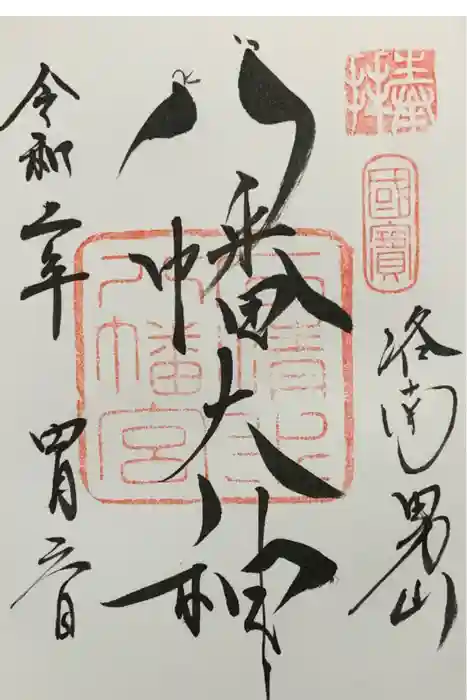 奉拝
國寶
洛南男山
八幡大神
石清水
八幡宮
令和二年 四月六日